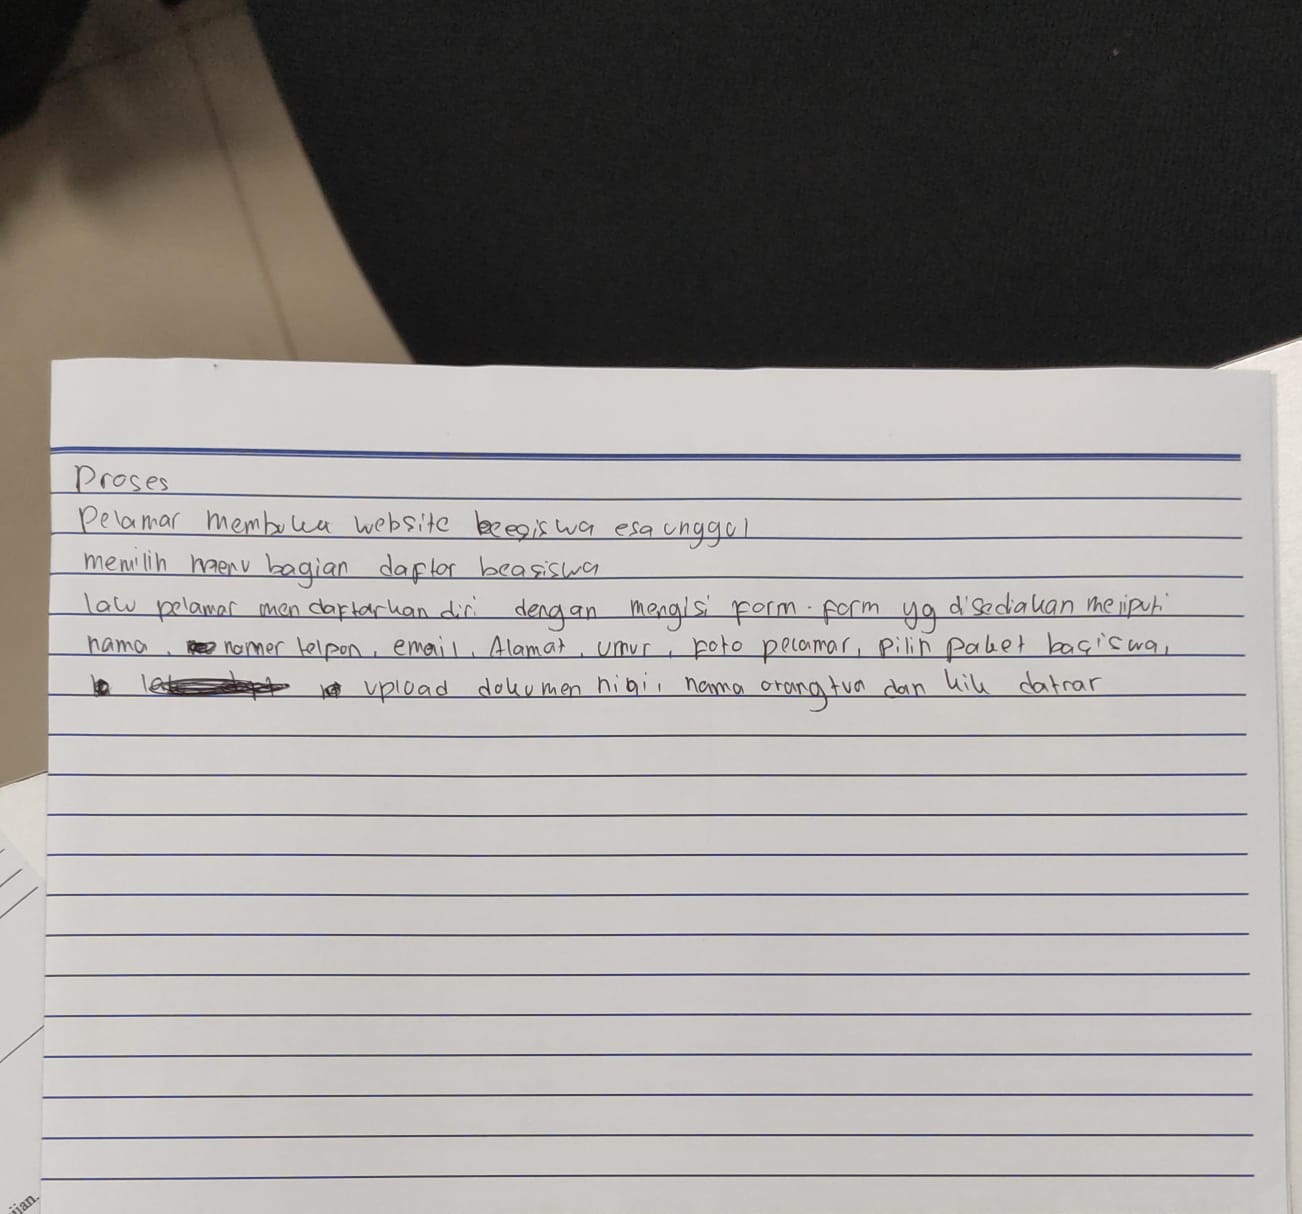 Proses
Pelamar membuka website beasiswa esa unggul
memilih menu bagian daftar beasiswa
lalu pelamar mendaftarkan diri dengan mengisi form-form yg disediakan meliputi
nama, nomer telpon, email, Alamat, umur, foto pelamar, pilih paket basiswa,
upload dokumen nilai, nama orang tua dan klik daftar
jian.